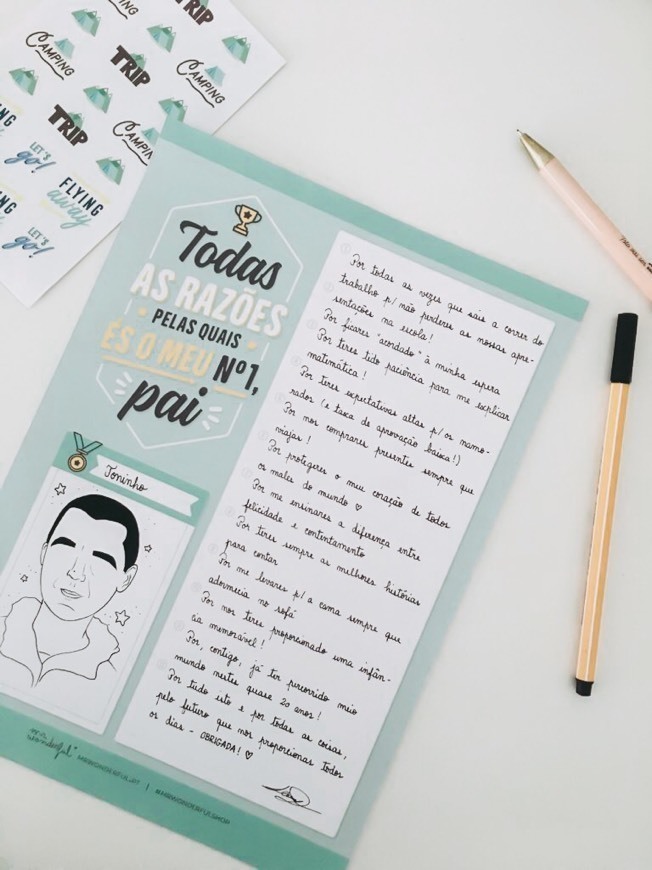 CAMPING
TRIP
TRIP
CAMPING
TRIP
CAMPING
LET'S
go!
FLYING
away
LET'S
go!
Todas
AS RAZÕES
PELAS QUAIS
ÉS O MEU Nº1,
pai
Toninho
Por todas as vezes que sais a correr do
trabalho p/ não perderes as nossas apre-
sentações na escola!
Por ficares "acordado" à minha espera
Por teres tido paciência para me explicar
matemática!
Por teres expectativas altas p/ os namo-
rados (e taxa de aprovação baixa!)
Por nos comprares presentes sempre que
viajas!
Por protegeres o meu coração de todos
os males do mundo ♡
Por me ensinares a diferença entre
felicidade e contentamento
Por teres sempre as melhores histórias
para contar
Por me levares p/ a cama sempre que
adormecia no sofá
Por nos teres proporcionado uma infân-
cia memorável!
Por, contigo, já ter percorrido meio
mundo nestes quase 20 anos!
Por tudo isto e por todas as coisas,
pelo futuro que nos proporcionas todos
os dias - OBRIGADA! ♡
mr. wonderful*
MRWONDERFUL.PT | #MRWONDERFULSHOP